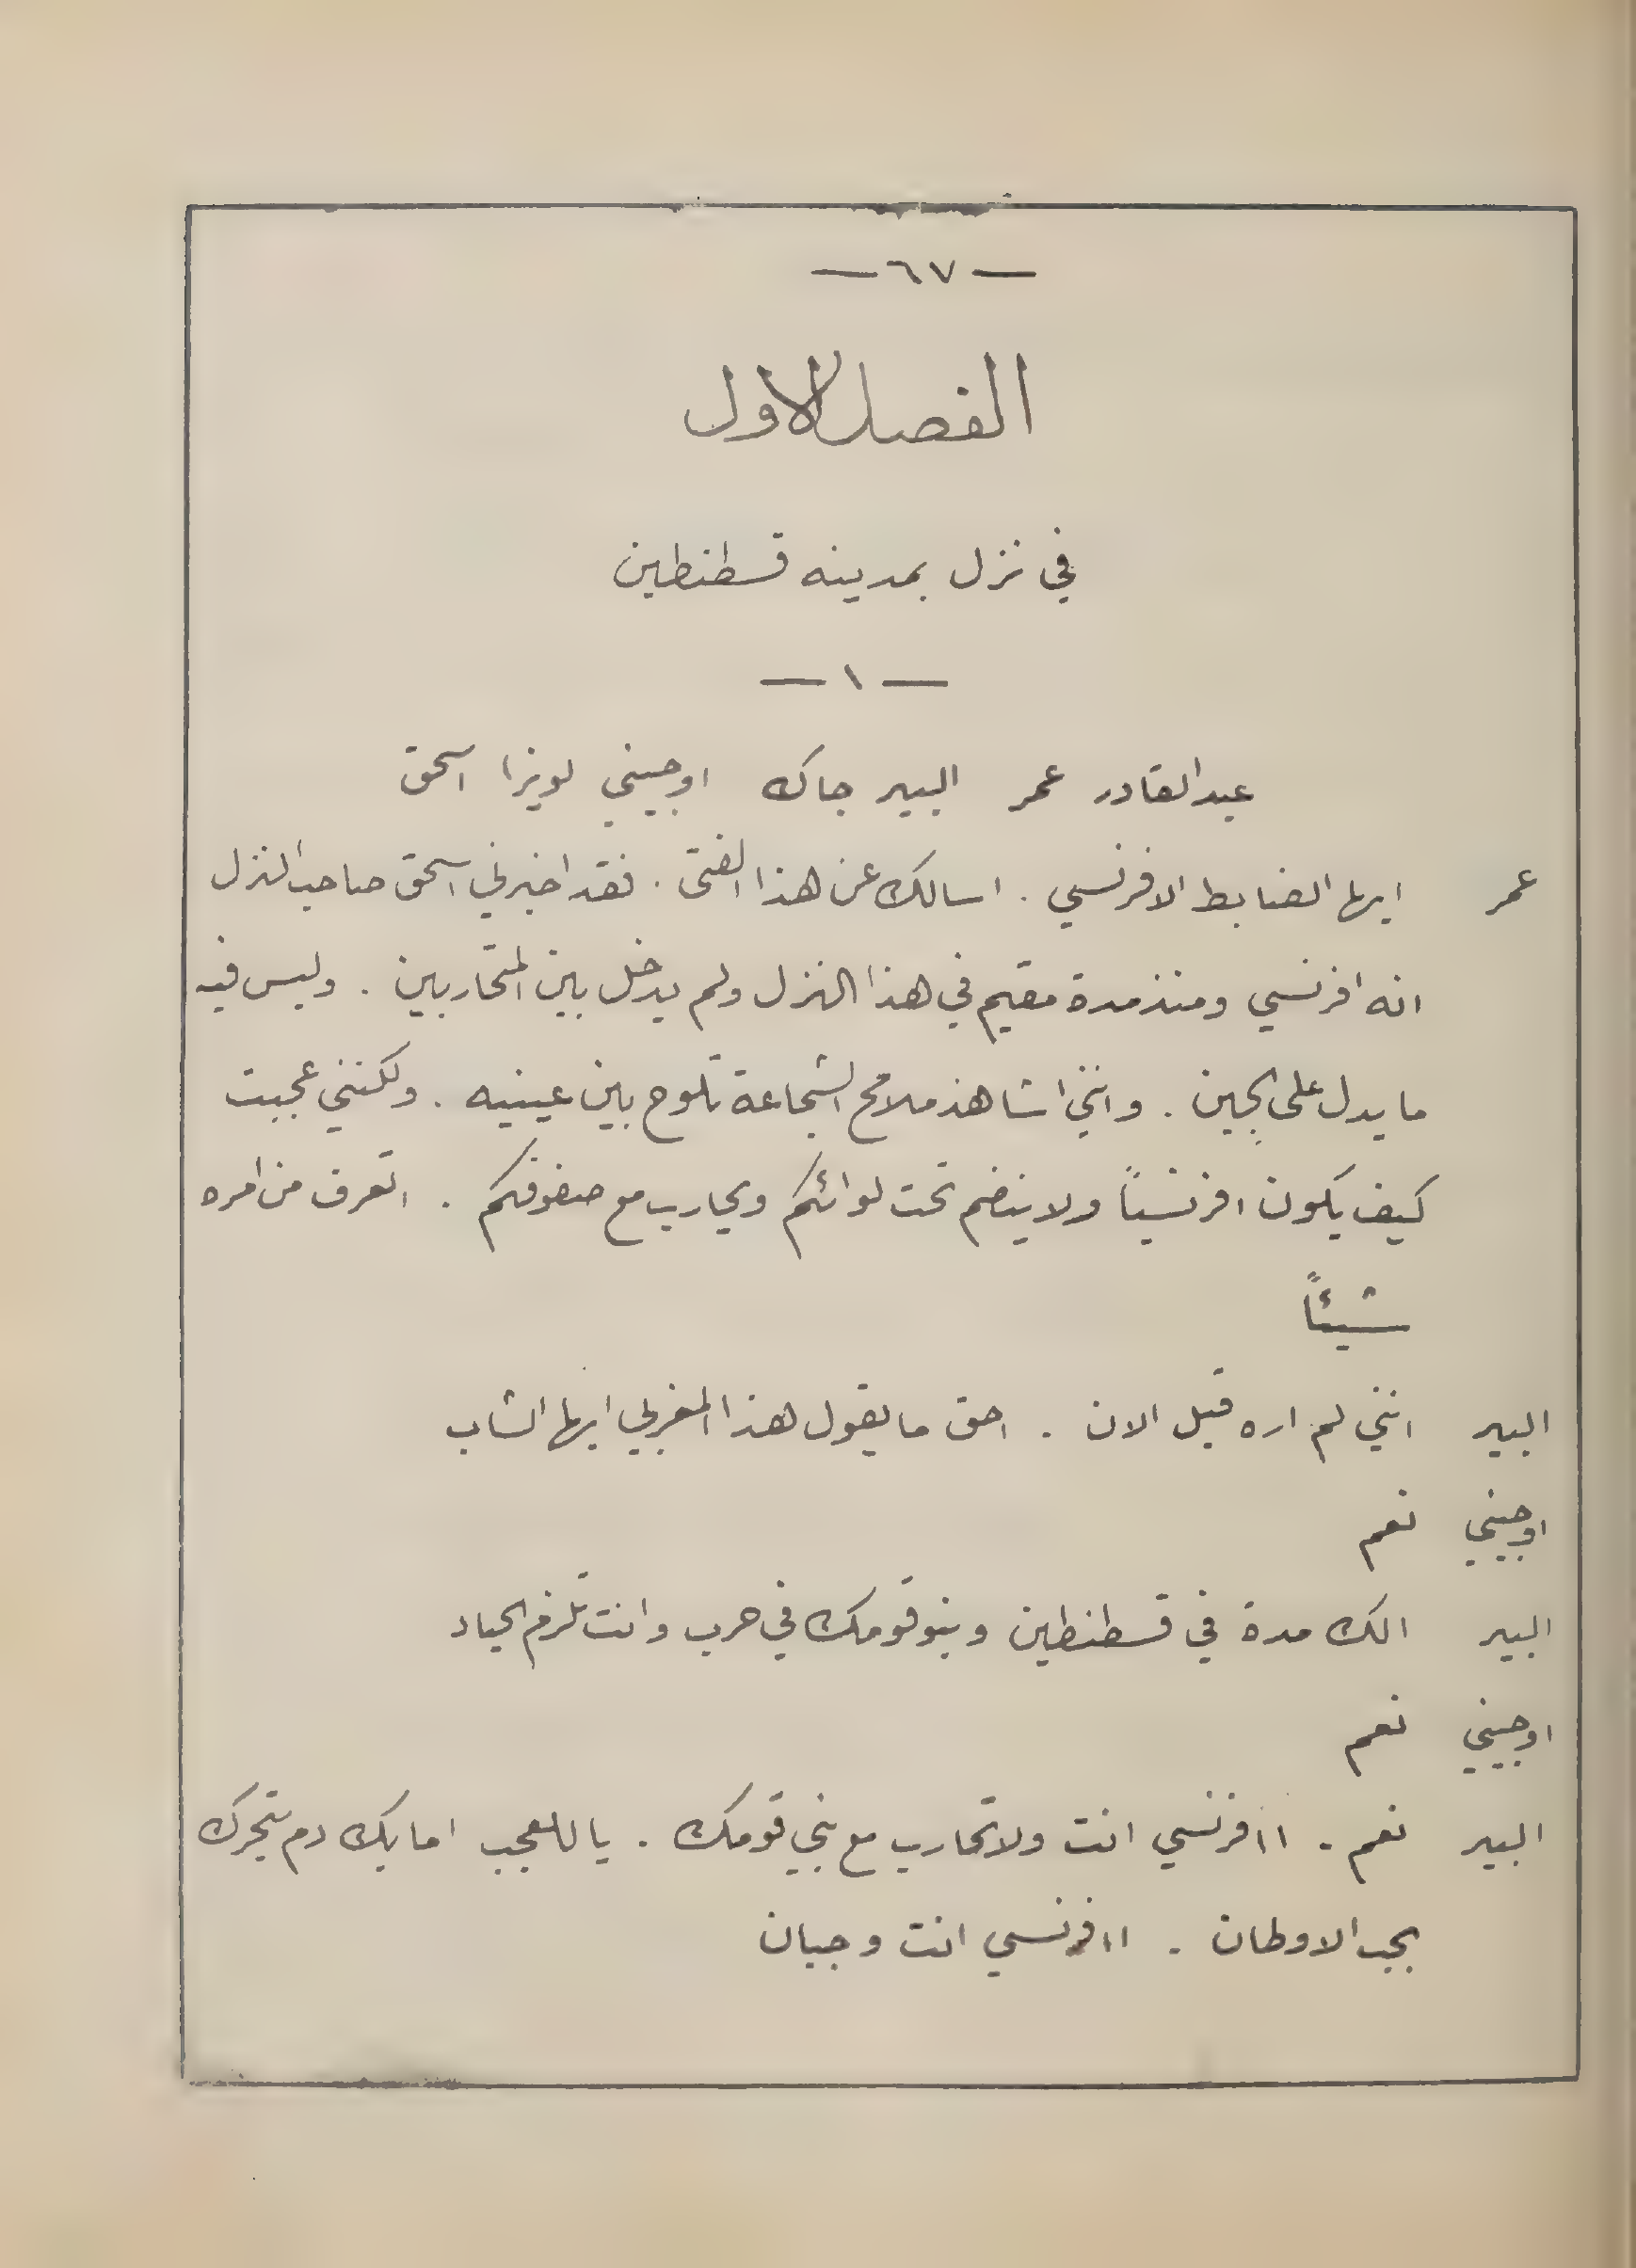 — ٦٧ —
الفصل الاول
في نزل بمدينه قسطنطين
— ١ —
عبدالقادر عمر البير جاك اوجيني لويزا اسحق
عمر ايها الضابط الافرنسي . اسالك عن هذا الفتى . فقد اخبرني اسحق صاحب النزل
انه افرنسي ومنذ مدة مقيم في هذا النزل ولم يدخل بين المتحاربين . وليس فيه
ما يدل على الجبن . وانني اشاهد ملامح الشجاعة تلوح بين عينيه . ولكنني عجبت
كيف يكون افرنسياً ولا ينضم تحت لوائكم ويحارب مع صفوفكم . اتعرف من امره
شيئاً
البير انني لم اره قبل الان . احق ما يقول هذا المغربي ايها الشاب
اوجيني نعم
البير الك مدة في قسطنطين وبنو قومك في حرب وانت تلزم الحياد
اوجيني نعم
البير نعم . اافرنسي انت ولا تحارب مع بني قومك . يا للعجب اما بك دم يتحرك
بحب الاوطان . اافرنسي انت وجبان